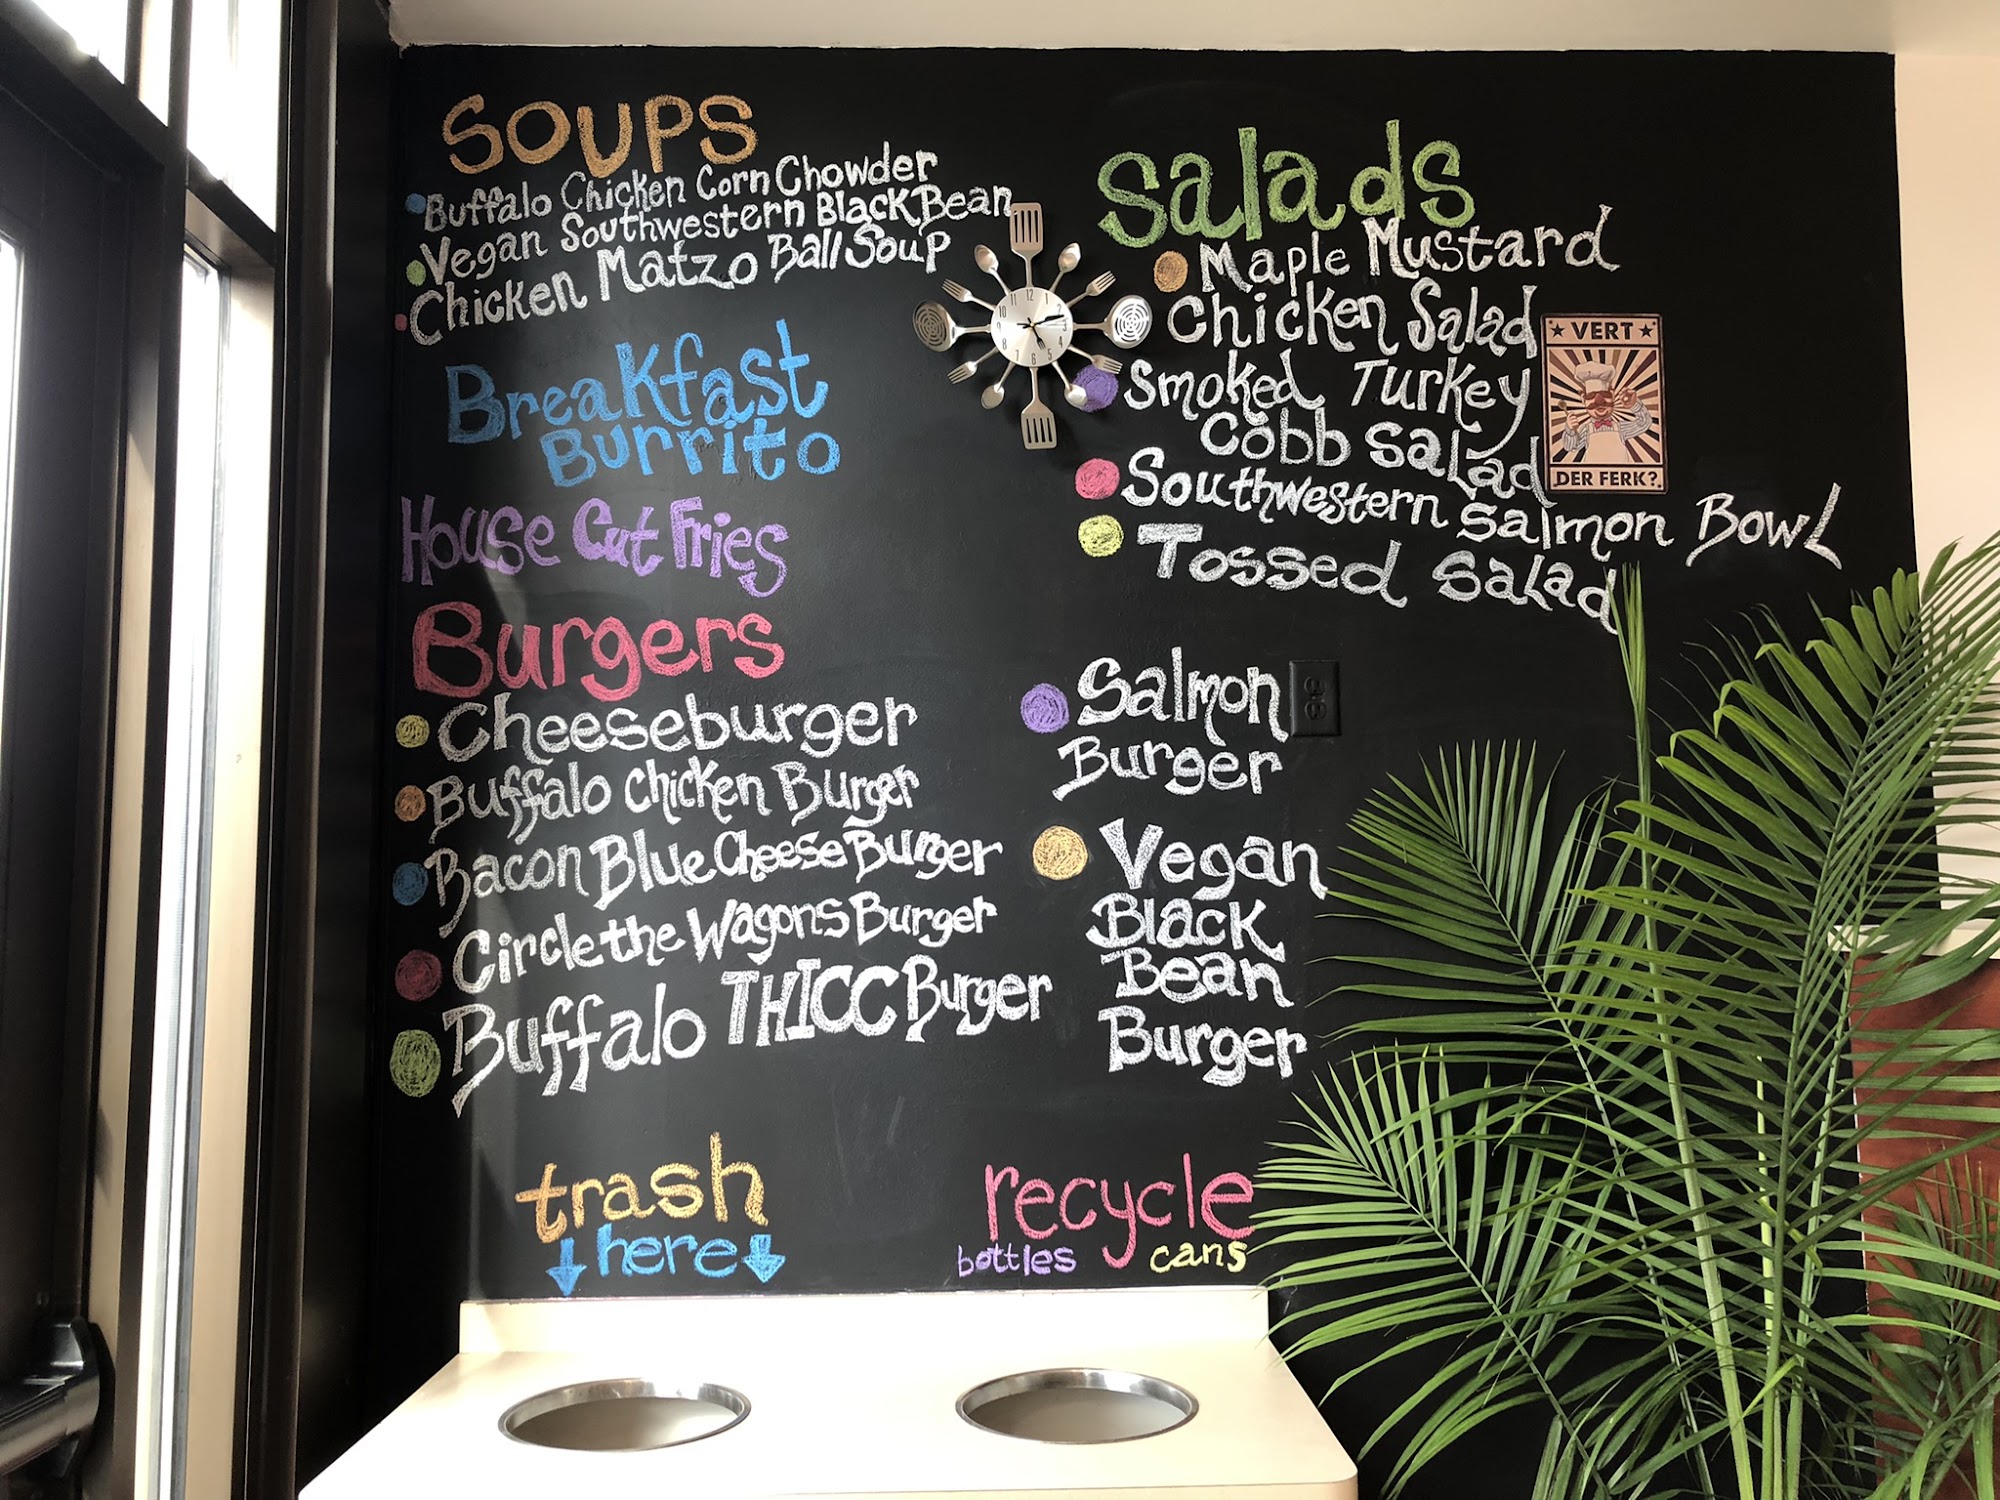 Soups
Buffalo Chicken Corn Chowder
Vegan Southwestern Black Bean
Chicken Matzo Ball Soup
Breakfast
Burrito
House Cut Fries
Burgers
Cheeseburger
Buffalo Chicken Burger
Bacon Blue Cheese Burger
Circle the Wagons Burger
Buffalo THICC Burger
Salads
Maple Mustard
Chicken Salad
Smoked Turkey
Cobb Salad
Southwestern Salmon Bowl
Tossed Salad
VERT
DER FERK?
Salmon
Burger
Vegan
Black
Bean
Burger
trash
here
recycle
bottles cans